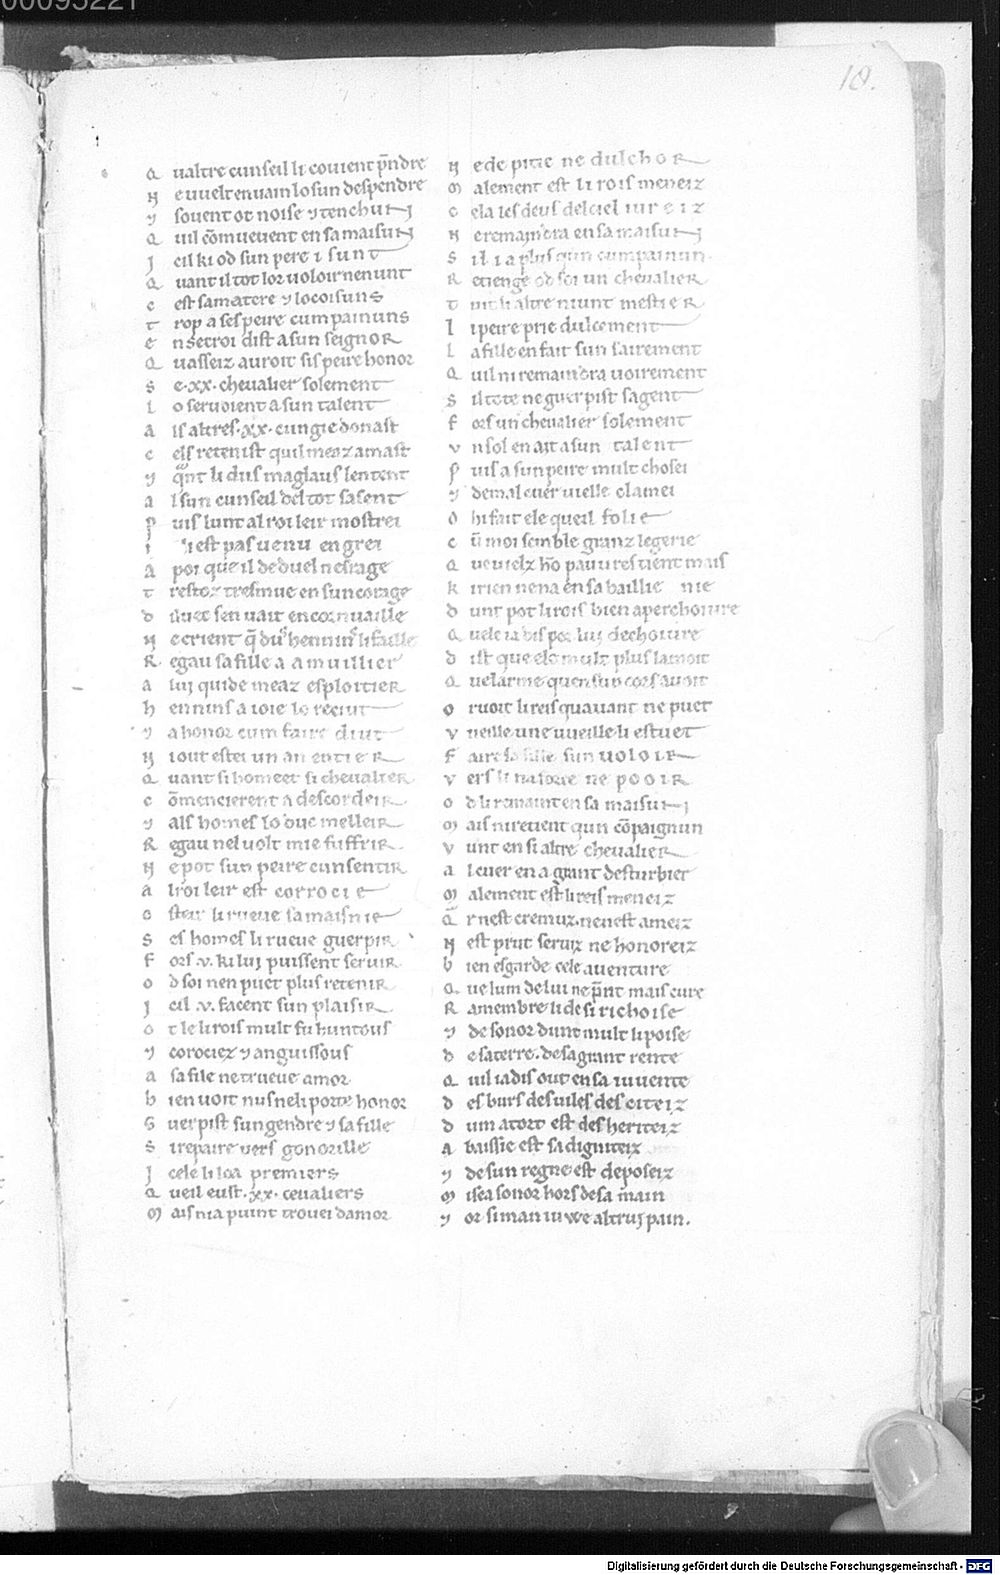 00095221
10.
Q ualtre cunseil li couient p̄ndre
N e uuelt en uain lo sun despendre
⁊ souent ot noise ⁊ tenchun
Q uil cōmueuent en sa maisun
J cil ki od sun pere i sunt
Q uant il tot lor uoloir nen unt
C est sa matere ⁊ locoisuns
T rop a ses peire cumpainuns
E nsetroi dist a sun seignor
Q uasseiz auroit sis peire honor
S e .xx. cheualier solement
L o seruoient a sun talent
A is altres .xx. cungie donast
C els retenist quil meaz amast
⁊ q̄nt li dus maglaus lentent
A l sun cunseil del tot sasent
P uis lunt al roi leir mostrei
i est pas uenu en grei
A poi que il de duel nesrage
T restoz tresmue en sun corage
D sen uait en cornuaille
N e crient q̄ du hennin li faille
R egau sa fille a a muillier
A luj quide meaz esploitier
H ennins a ioie lo reciut
⁊ a honor cum faire diut
N i out estei un an entier
Q uant si home et si cheualier
C ōmencierent a descordeir
⁊ als homes lo duc melleir
R egau nel uolt mie suffrir
N e pot sun peire cunsentir
A l roi leir est corrocie
O steir li rueue sa maisnie
S es homes li rueue guerpir
F ors .v. ki luj puissent seruir
O d soi nen puet plus retenir
J cil .v. facent sun plaisir
O t le li rois mult fu huntous
⁊ corociez ⁊ anguissous
A sa file ne trueue amor
B ien uoit nus neli porte honor
G uerpist sun gendre ⁊ sa fille
S irepaire vers gonorille
J cele li loa premiers
Q ueil eust .xx. ceualiers
M ais nia puint trouei damor
N e de pitie ne dulchor
M alement est li rois meneiz
C ela les deus del ciel iureiz
N e remaindra en sa maisun
S il i a plus qun cumpainun.
R etienge od soi un cheualier
D ni unt mestier
L i peire prie dulcement
L a fille en fait sun sairement
Q uil ni remaindra uoirement
S il tote ne guerpist sa gent
F ors un cheualier solement
V nsol en ait a sun talent
P uis a sun peire mult chosei
⁊ de mal cuer uielle clamei
O hi fait ele queil folie
C ū moi semble granz legerie
Q ue uielz hō pauures tient mais
K i rien nen a en sa baillie nie
D unt pot li rois bien aperchoiure
Q uele ia dis por luj dechoiure
D ist que ele mult plus lamoit
Q ue larme quen sun cors auoit
O r uoit li reis quauant ne puet
V ueille u ne uueille li estuet
F aire sa fille sun uoloir
V ers li na force ne pooir
O d li remaint en sa maisun
M ais ni retient qun cōpaignun
V unt en si altre cheualier
A l cuer en a grant desturbier
M alement est li reis meneiz
Q̄r nest cremuz. nenest ameiz
N est prut seruiz ne honoreiz
B ien esgarde cele auenture
Q ue lum de lui ne p̄nt mais cure
R amembre li de si richoise
⁊ de sonor dunt mult li poise
D e sa terre. de sa grant rente
Q uil iadis out en sa iuuente
D es burs des uiles des citeiz
D um a tort est desheriteiz
A baissie est sa digniteiz
⁊ de sun regne est deposeiz
M isea sonor hors de sa main
⁊ or si man iuwe altruj pain.
Digitalisierung gefördert durch die Deutsche Forschungsgemeinschaft - DFG